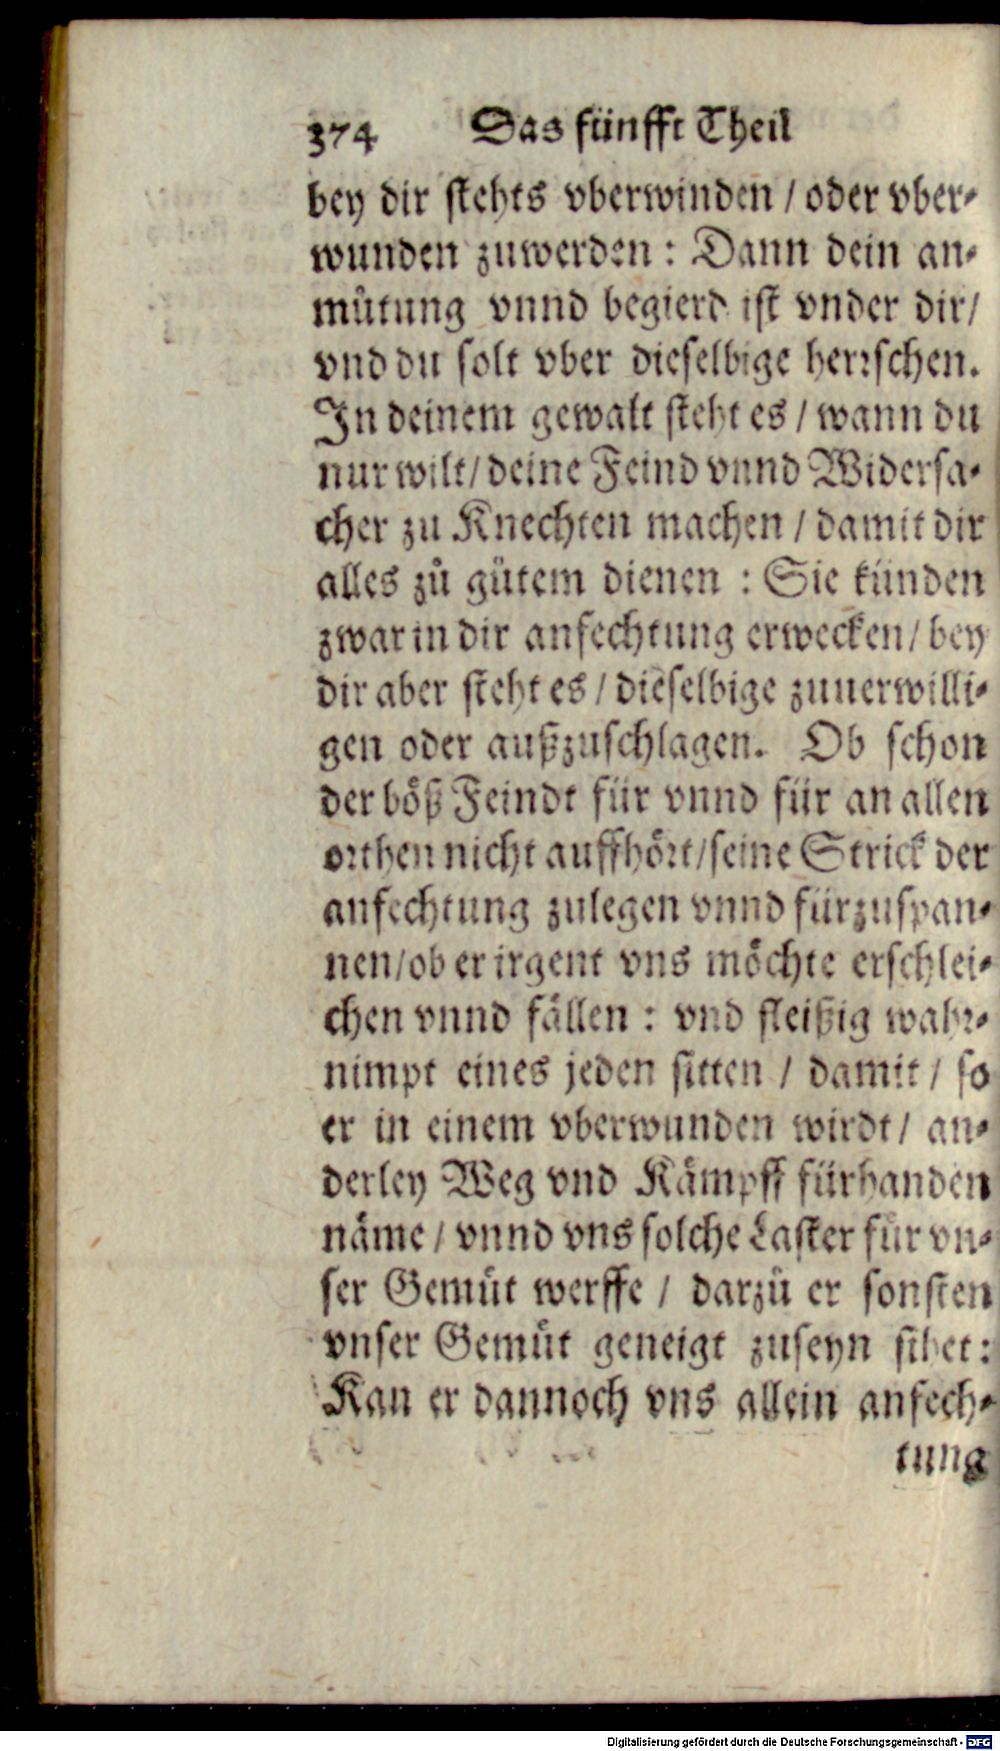 374 Das fünfft Theil
bey dir stehts vberwinden / oder vber-
wunden zuwerden : Dann dein an-
mütung vnnd begierd ist vnder dir/
vnd du solt vber dieselbige herrschen.
In deinem gewalt steht es / wann du
nur wilt/ deine Feind vnnd Widersa-
cher zu Knechten machen / damit dir
alles zů gůtem dienen : Sie künden
zwar in dir anfechtung erwecken/ bey
dir aber steht es / dieselbige zuuerwilli-
gen oder außzuschlagen. Ob schon
der böß Feindt für vnnd für an allen
orthen nicht auffhört/seine Strick der
anfechtung zulegen vnnd fürzuspan-
nen/ob er irgent vns möchte erschlei-
chen vnnd fällen : vnd fleißig wahr-
nimpt eines jeden sitten / damit / so
er in einem vberwunden wirdt/ an-
derley Weg vnd Kämpff fürhanden
näme / vnnd vns solche Laster für vn-
ser Gemüt werffe / darzů er sonsten
vnser Gemüt geneigt zuseyn sihet:
Kan er dannoch vns allein anfech-
tung
Digitalisierung gefördert durch die Deutsche Forschungsgemeinschaft - DFG